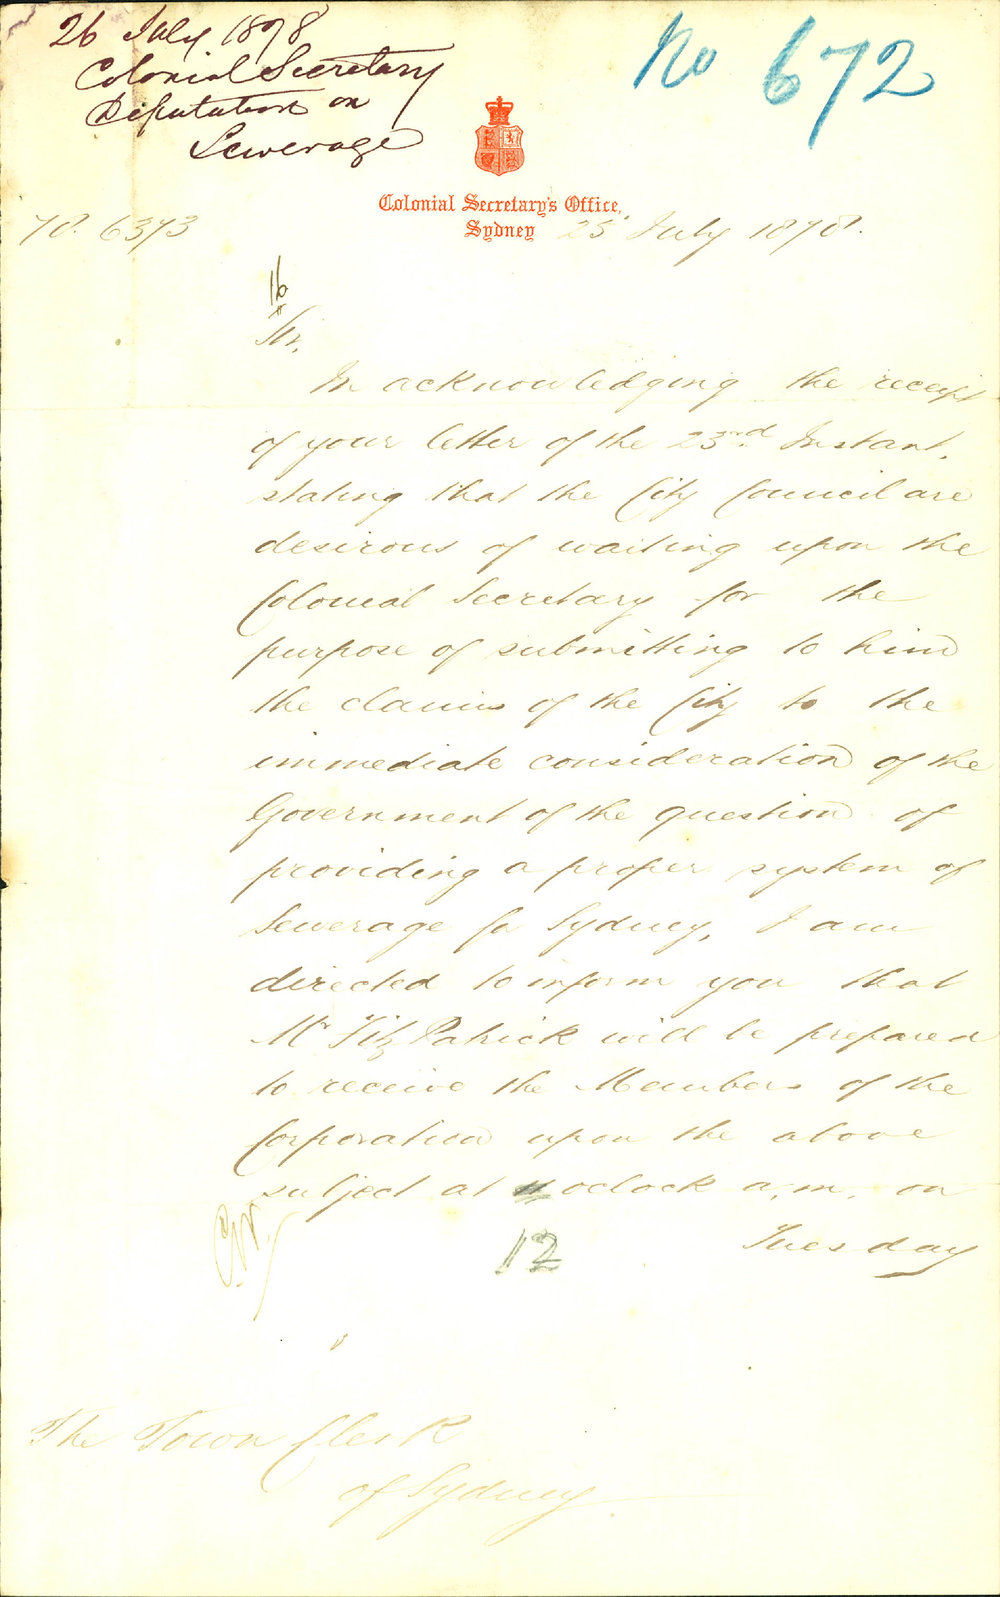 26 July. 1878
Colonial Secretary
Deputation on
Sewerage
No 672
Colonial Secretary's Office,
Sydney 25 July 1878.
78. 6373
16
Sir,
In acknowledging the receipt
of your letter of the 23rd Instant,
stating that the City Council are
desirous of waiting upon the
Colonial Secretary for the
purpose of submitting to him
the claims of the City to the
immediate consideration of the
Government of the question of
providing a proper system of
Sewerage for Sydney, I am
directed to inform you that
Mr FitzPatrick will be prepared
to receive the Members of the
Corporation upon the above
subject at 11 oclock a.m. on
12
Tuesday
The Town Clerk
of Sydney